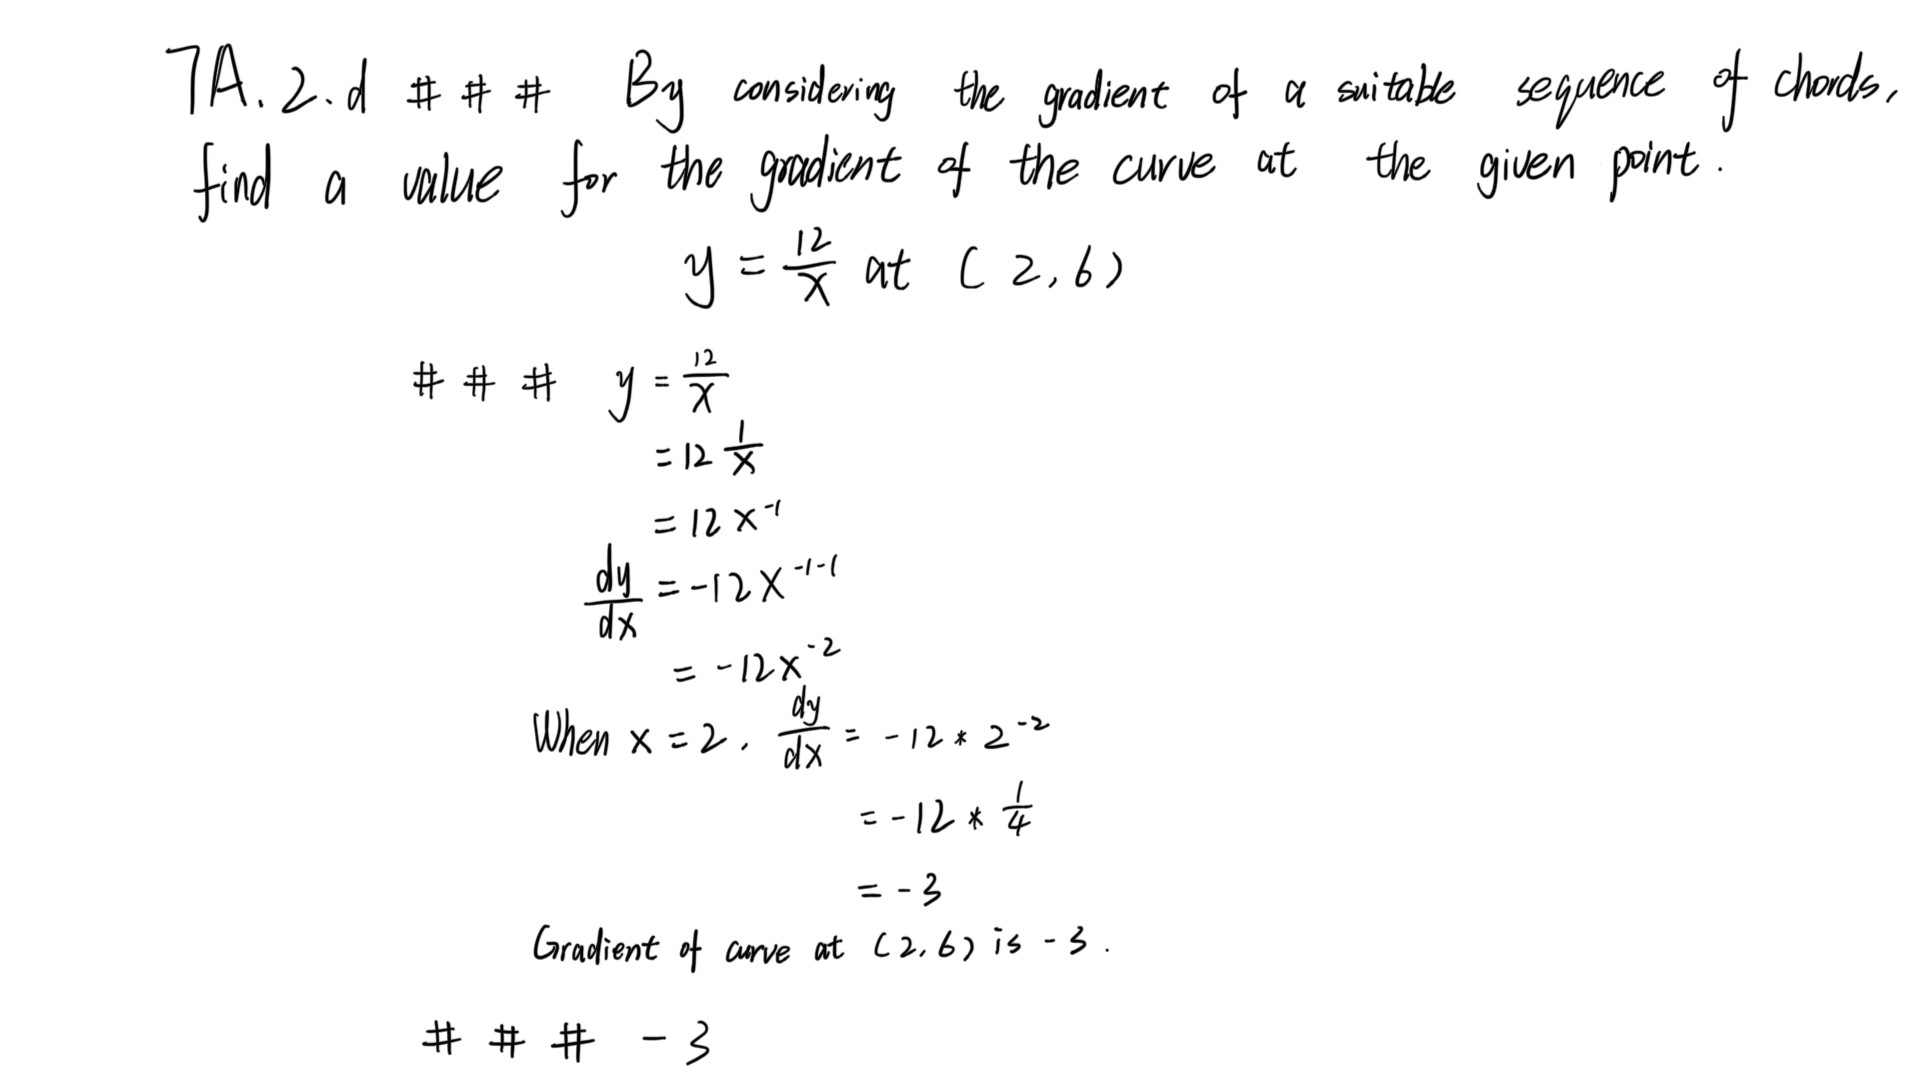 7A.2.d # # # By considering the gradient of a suitable sequence of chords,
find a value for the gradient of the curve at the given point.
y = 12/x at (2,6)
# # # y = 12/x
= 12 1/x
= 12x^-1
dy/dx = -12x^-1-1
= -12x^-2
When x = 2, dy/dx = -12 * 2^-2
= -12 * 1/4
= -3
Gradient of curve at (2,6) is -3.
# # # -3